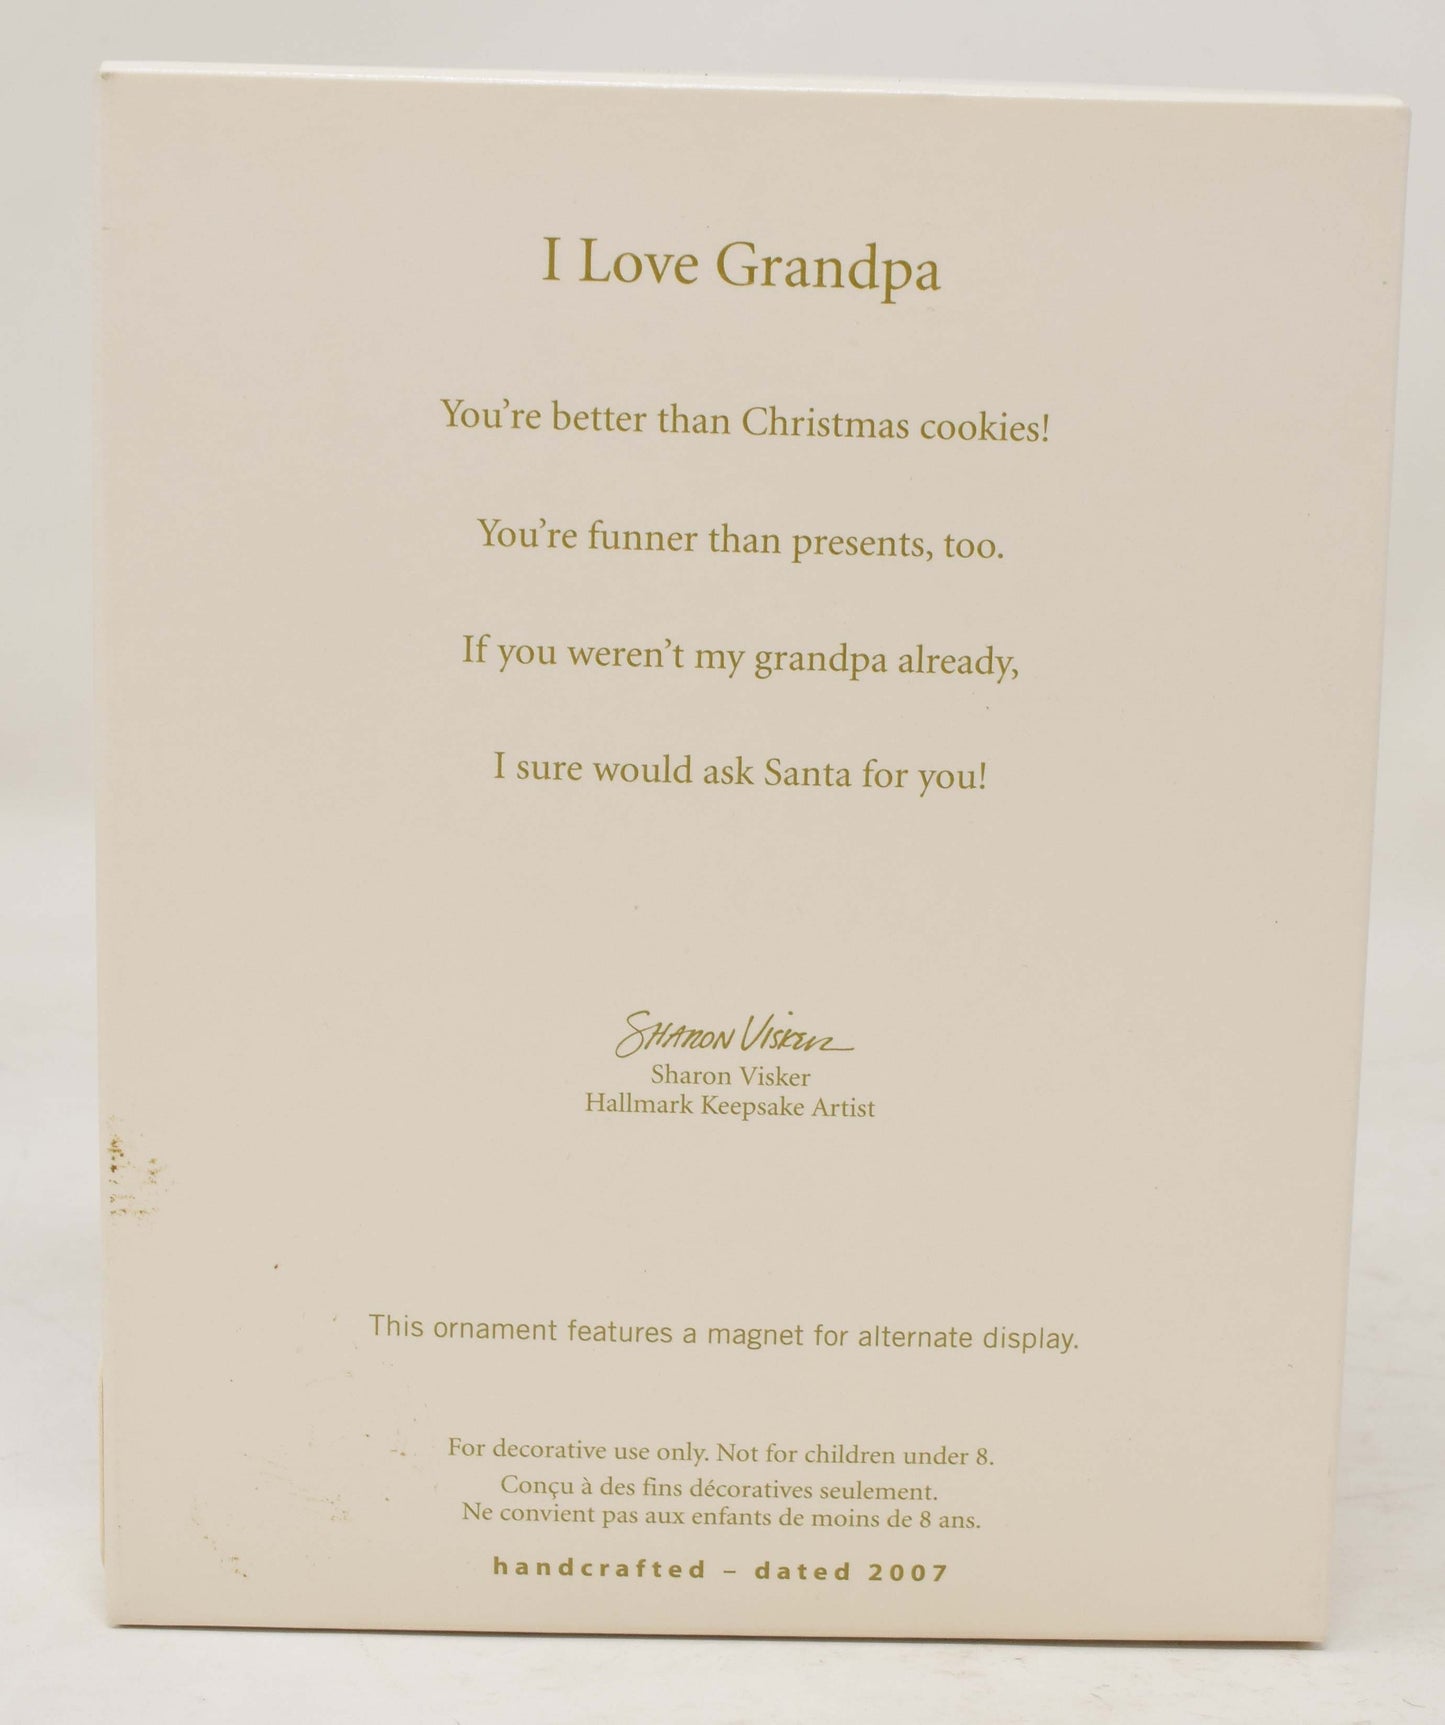 I Love Grandpa
You're better than Christmas cookies!
You're funner than presents, too.
If you weren't my grandpa already,
I sure would ask Santa for you!
Sharon Visker
Sharon Visker
Hallmark Keepsake Artist
This ornament features a magnet for alternate display.
For decorative use only. Not for children under 8.
Conçu à des fins décoratives seulement.
Ne convient pas aux enfants de moins de 8 ans.
handcrafted – dated 2007